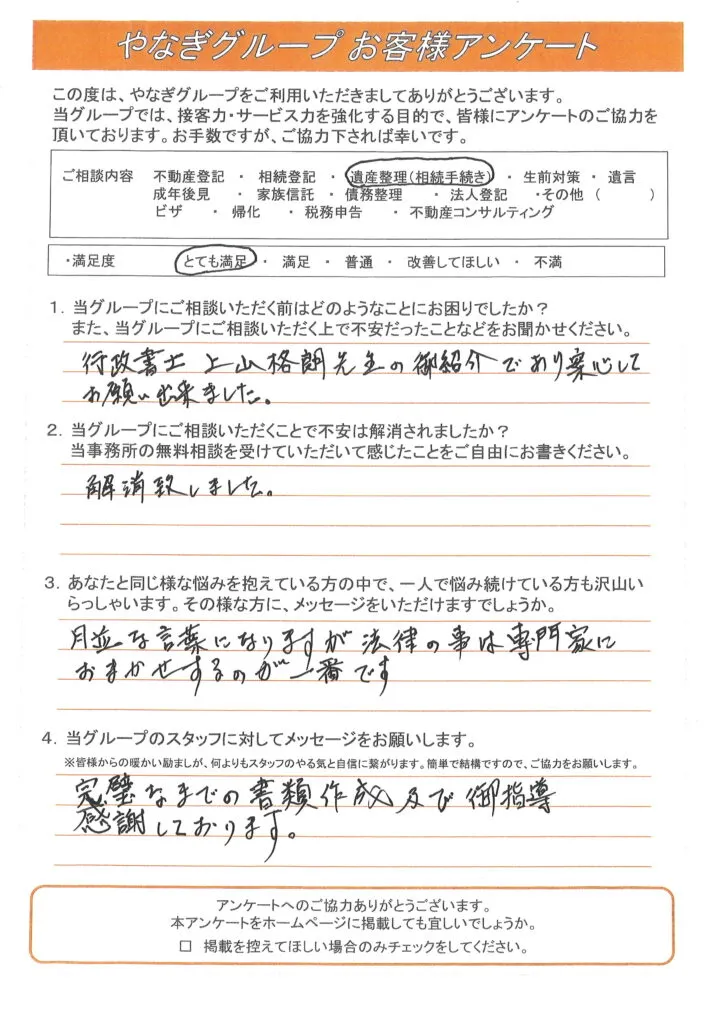 やなぎグループ お客様アンケート
この度は、やなぎグループをご利用いただきましてありがとうございます。
当グループでは、接客力・サービス力を強化する目的で、皆様にアンケートのご協力を
頂いております。お手数ですが、ご協力下されば幸いです。
ご相談内容 不動産登記 ・ 相続登記 ・ 遺産整理(相続手続き) ・ 生前対策 ・ 遺言
成年後見 ・ 家族信託 ・ 債務整理 ・ 法人登記 ・その他 ( )
ビザ ・ 帰化 ・ 税務申告 ・ 不動産コンサルティング
・満足度 とても満足 ・ 満足 ・ 普通 ・ 改善してほしい ・ 不満
1. 当グループにご相談いただく前はどのようなことにお困りでしたか?
また、当グループにご相談いただく上で不安だったことなどをお聞かせください。
行政書士 上山格朗先生の御紹介であり安心して
お願い出来ました。
2. 当グループにご相談いただくことで不安は解消されましたか?
当事務所の無料相談を受けていただいて感じたことをご自由にお書きください。
解消致しました。
3. あなたと同じ様な悩みを抱えている方の中で、一人で悩み続けている方も沢山い
らっしゃいます。その様な方に、メッセージをいただけますでしょうか。
月並な言葉になりますが法律の事は専門家に
おまかせするのが一番です
4. 当グループのスタッフに対してメッセージをお願いします。
※皆様からの暖かい励ましが、何よりもスタッフのやる気と自信に繋がります。簡単で結構ですので、ご協力をお願いします。
完璧なまでの書類作成及び御指導
感謝しております。
アンケートへのご協力ありがとうございます。
本アンケートをホームページに掲載しても宜しいでしょうか。
□ 掲載を控えてほしい場合のみチェックをしてください。